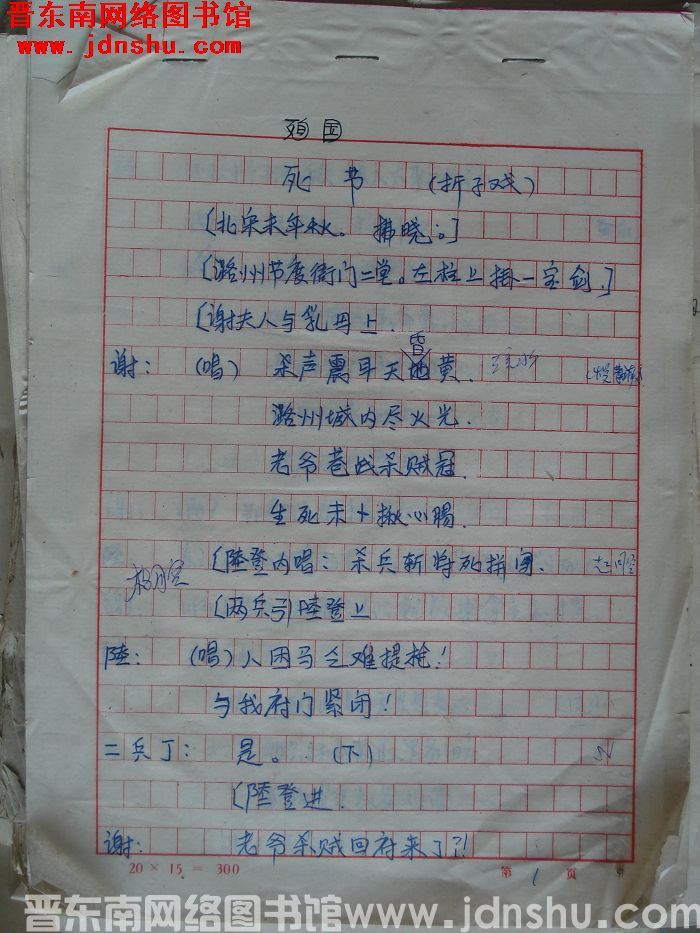 晋东南网络图书馆
www.jdnshu.com
殉国
死节 (折子戏)
[北宋末年秋。拂晓。]
[潞州节度衙门二堂。左柱上掛一宝剑.]
[谢夫人与乳母上.
昏
谢: (唱) 杀声震耳天地黄.
潞州城内尽火光.
老爷巷战杀贼冦.
生死未卜揪心腸.
[陸登内唱: 杀兵斩将死拼闯.
[两兵引陸登上
陸: (唱) 人困马乏难提抢!
与我府门紧闭!
二兵丁: 是。(下)
[陸登进.
谢: 老爷杀贼回府来了?!
20 × 15 = 300
第 1 页
晋东南网络图书馆www.jdnshu.com